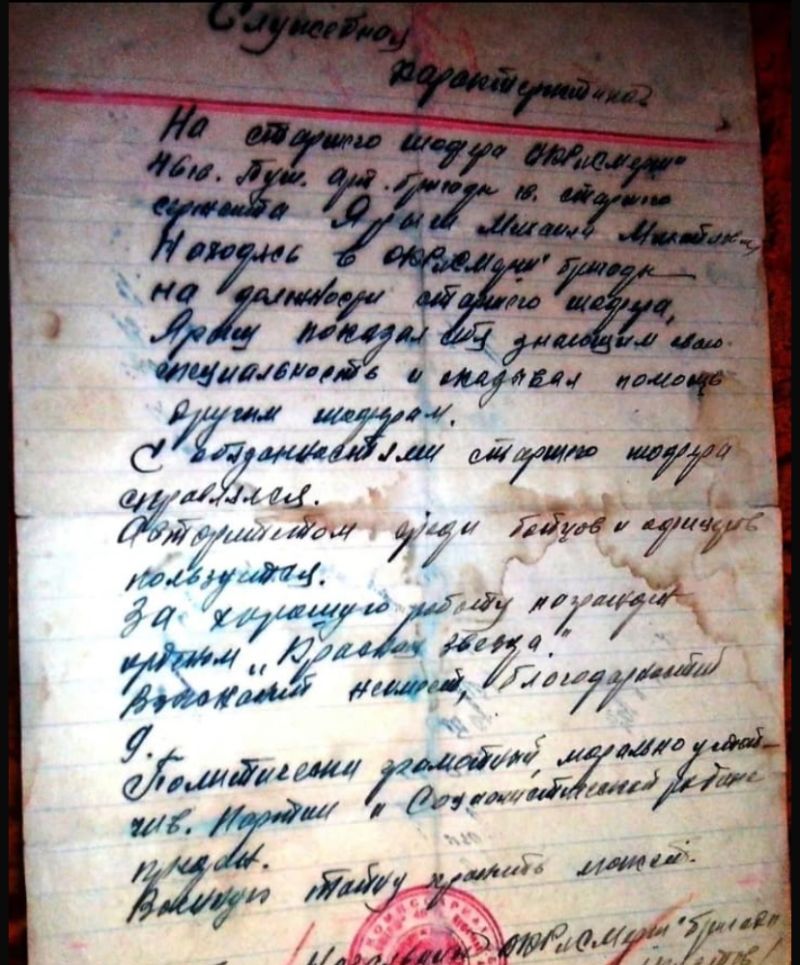 Служебная
характеристика
На старшего шофера ОКР "Смерш"
46 гв. Пуш. арт. бригады гв. старшего
сержанта Ярыш Михаила
Находясь в ОКР "Смерш" бригады
на должности старшего шофера,
Ярыш показал себя знающим свою
специальность и оказывал помощь
другим шоферам.
С обязанностями старшего шофера
справлялся.
Авторитетом среди бойцов и офицеров
пользуется.
За хорошую работу награжден
орденом "Красная звезда."
Взысканий не имеет, благодарностей
9.
Политически грамотный, морально устой-
чив. Партии и Социалистической родине
предан.
Военную тайну хранить может.
Начальник ОКР "Смерш" бригады